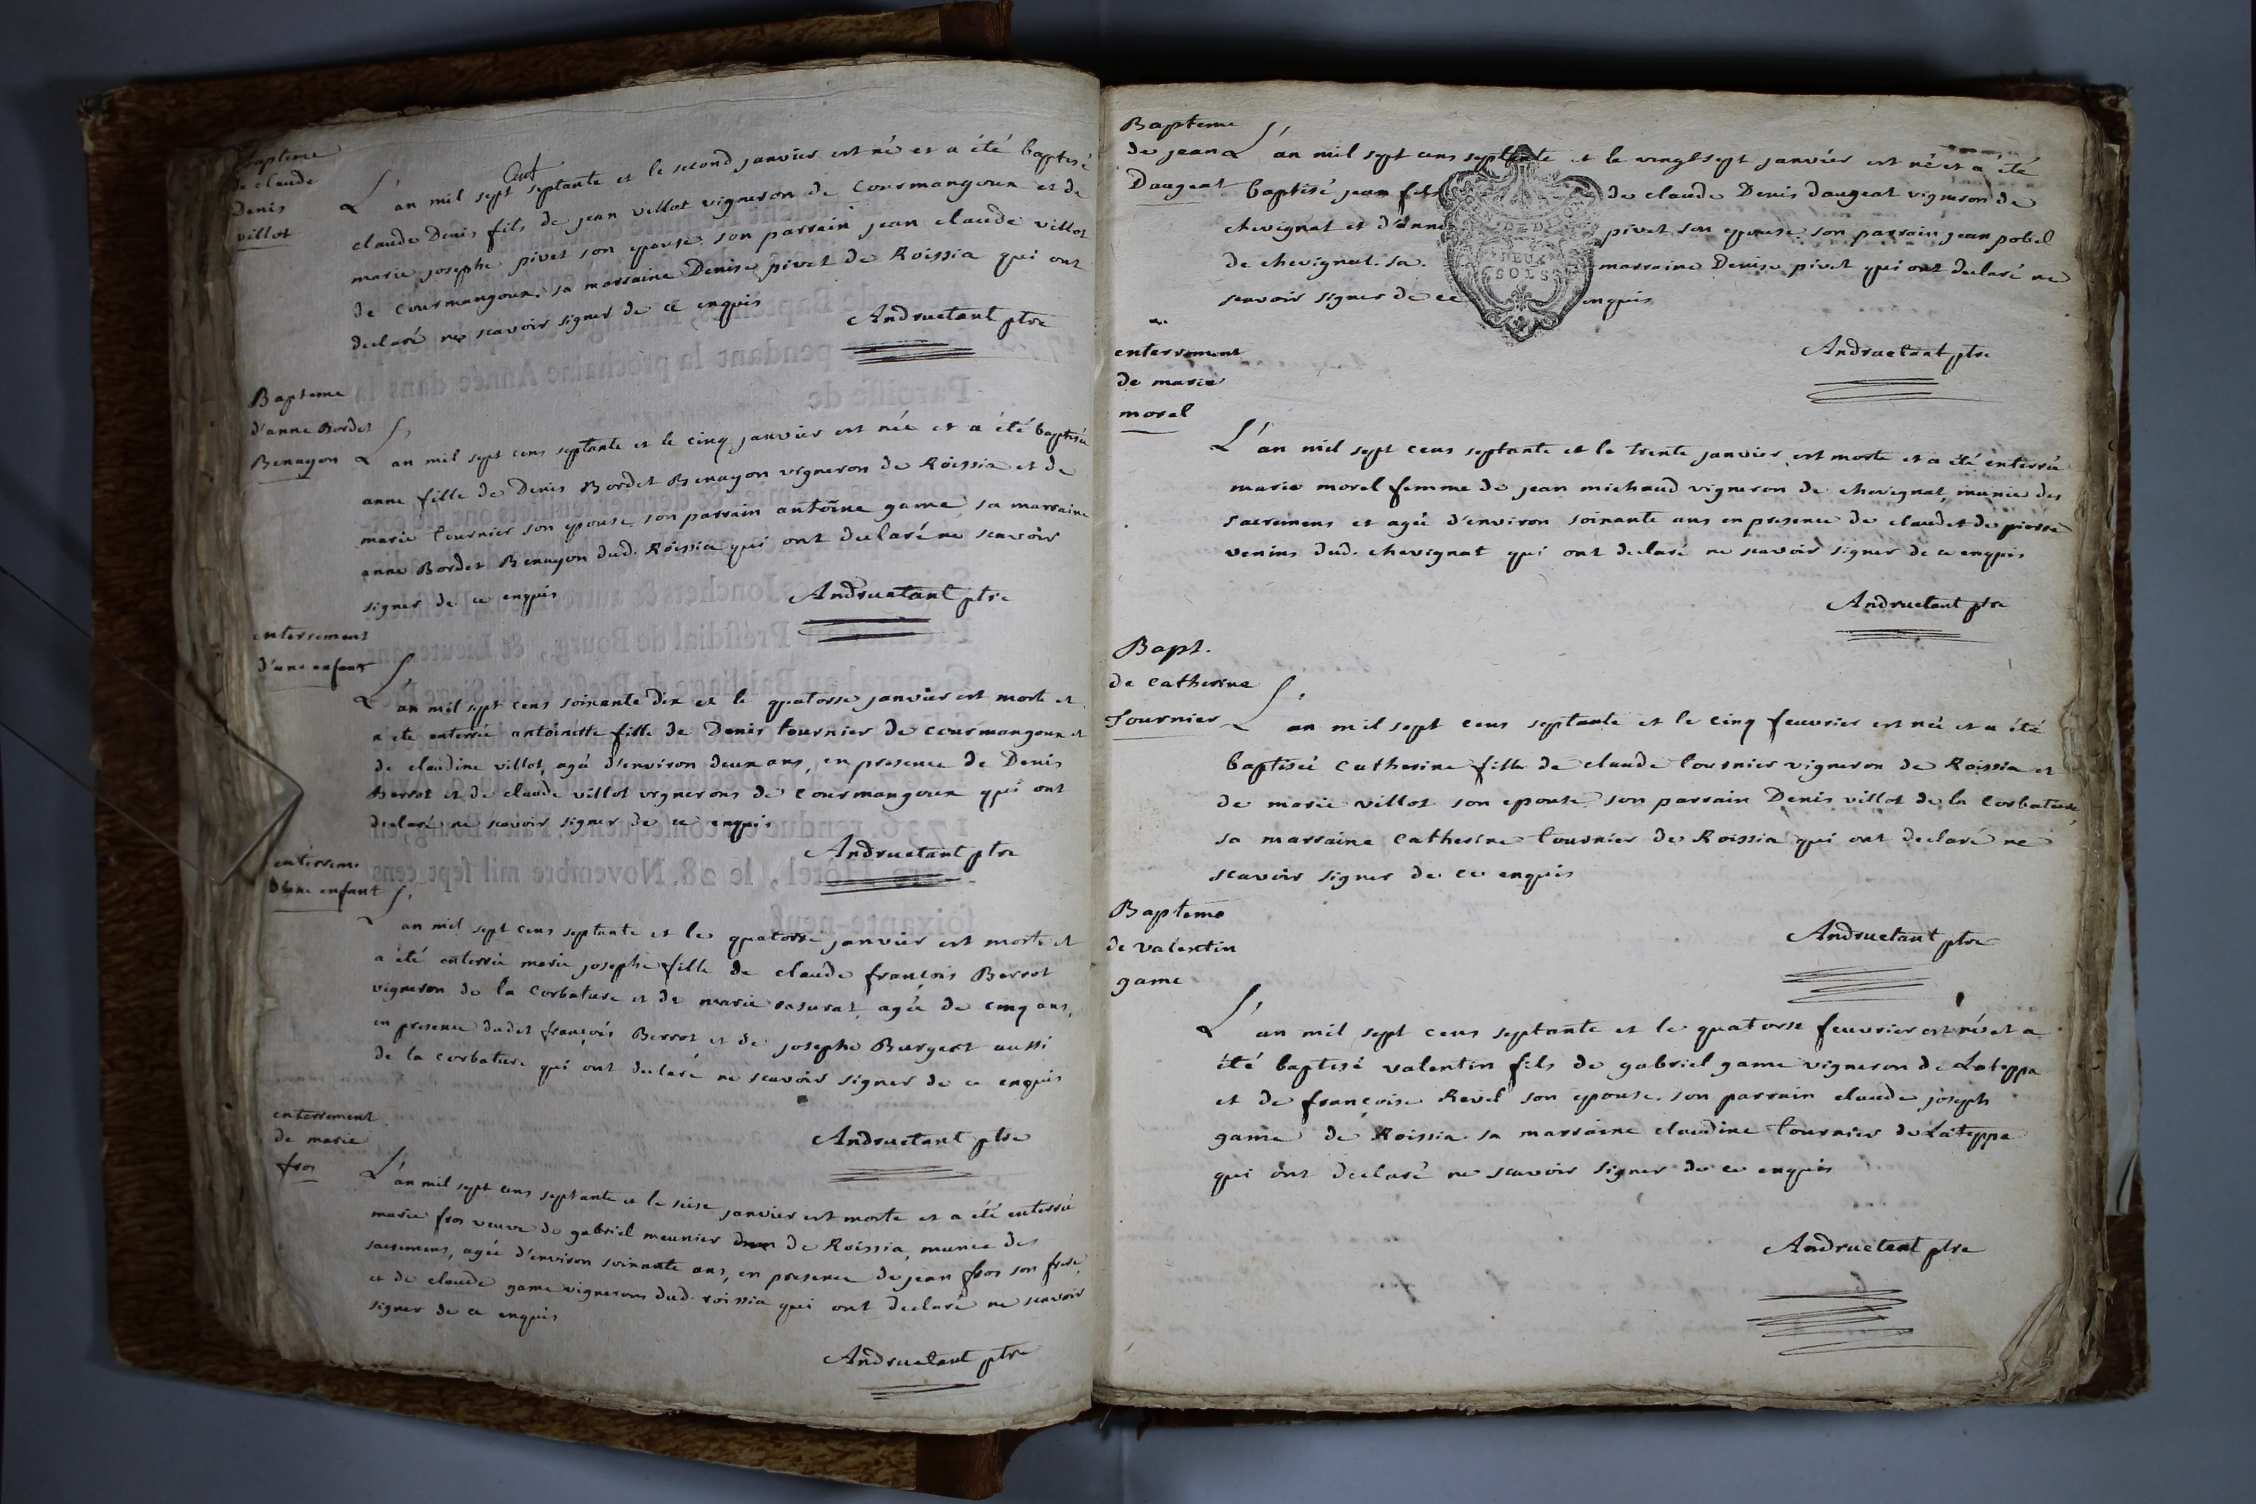 Bapteme
de claude
Denis
villot
L'an mil sept cens septante et le second janvier est né et a été baptisé
claude Denis fils de jean villot vigneron de Courmangoux et de
marie josephe pivet son epouse. son parrain jean claude villot
de Courmangoux. sa marraine Denise pivet de Roissia qui ont
declaré ne scavoir signer de ce enquis
Andruetant ptre
Bapteme
d'anne Bordet
Benayon
L'an mil sept cens septante et le cinq janvier est née et a été baptisée
anne fille de Denis Bordet Benayon vigneron de Roissia et de
marie tournier son epouse, son parrain antoine game, sa marraine
anne Bordet Benayon dud. Roissia qui ont declaré ne scavoir
signer de ce enquis
Andruetant ptre
enterrement
d'une enfant
L'an mil sept cens soixante dix et le quatorse janvier est morte et
a ete enterrée antoinette fille de Denis tournier de courmangoux et
de claudine villot, agée d'environ deux ans, en presence de Denis
Berrot et de claude villot vignerons de Courmangoux qui ont
declaré ne scavoir signer de ce enquis
Andruetant ptre
enterrem.
d'une enfant
L'an mil sept cens septante et le quatorse janvier est morte et
a été enterrée marie josephe fille de claude françois Berrot
vigneron de la Corbature et de marie rasurat, agée de cinq ans,
en presence dudet françois Berrot et de joseph Burgert aussi
de la corbature qui ont declaré ne scavoir signer de ce enquis
Andruetant ptre
enterrement
de marie
fros
L'an mil sept cens septante et le seise janvier est morte et a été enterrée
marie fros veuve de gabriel meunier de Roissia, munie des
sacremens, agée d'environ soixante ans, en presence de jean fros son frere,
et de claude game vignerons dud. roissia qui ont declaré ne scavoir
signer de ce enquis
Andruetant ptre
Bapteme
de jean
Daugeat
L'an mil sept cens septante et le vingt sept janvier est né et a été
baptisé jean fils de claude Denis daugeat vigneron de
chevignat et d'anne pivet son epouse son parrain jean pobel
de chevignat. sa marraine Denise pivet qui ont declaré ne
scavoir signer de ce enquis
DEUX
SOLS
Andruetant ptre
enterrement
de marie
morel
L'an mil sept cens septante et le trente janvier est morte et a été enterrée
marie morel femme de jean michaud vigneron de chevignat, munie des
sacremens et agée d'environ soixante ans en presence de claude et de pierre
venins dud. chevignat qui ont declaré ne scavoir signer de ce enquis
Andruetant ptre
Bapt.
de catherine
Tournier
L'an mil sept cens septante et le cinq feuvrier est née et a été
baptisée catherine fille de claude tournier vigneron de Roissia et
de marie villot son epouse, son parrain Denis villot de la Corbature,
sa marraine catherine tournier de Roissia qui ont declaré ne
scavoir signer de ce enquis
Andruetant ptre
Bapteme
de valentin
game
L'an mil sept cens septante et le quatorse feuvrier est né et a
été baptisé valentin fils de gabriel game vigneron de Lateppa
et de françoise Revel son epouse. son parrain claude joseph
game de Roissia sa marraine claudine tournier de Lateppa
qui ont declaré ne scavoir signer de ce enquis
Andruetant ptre